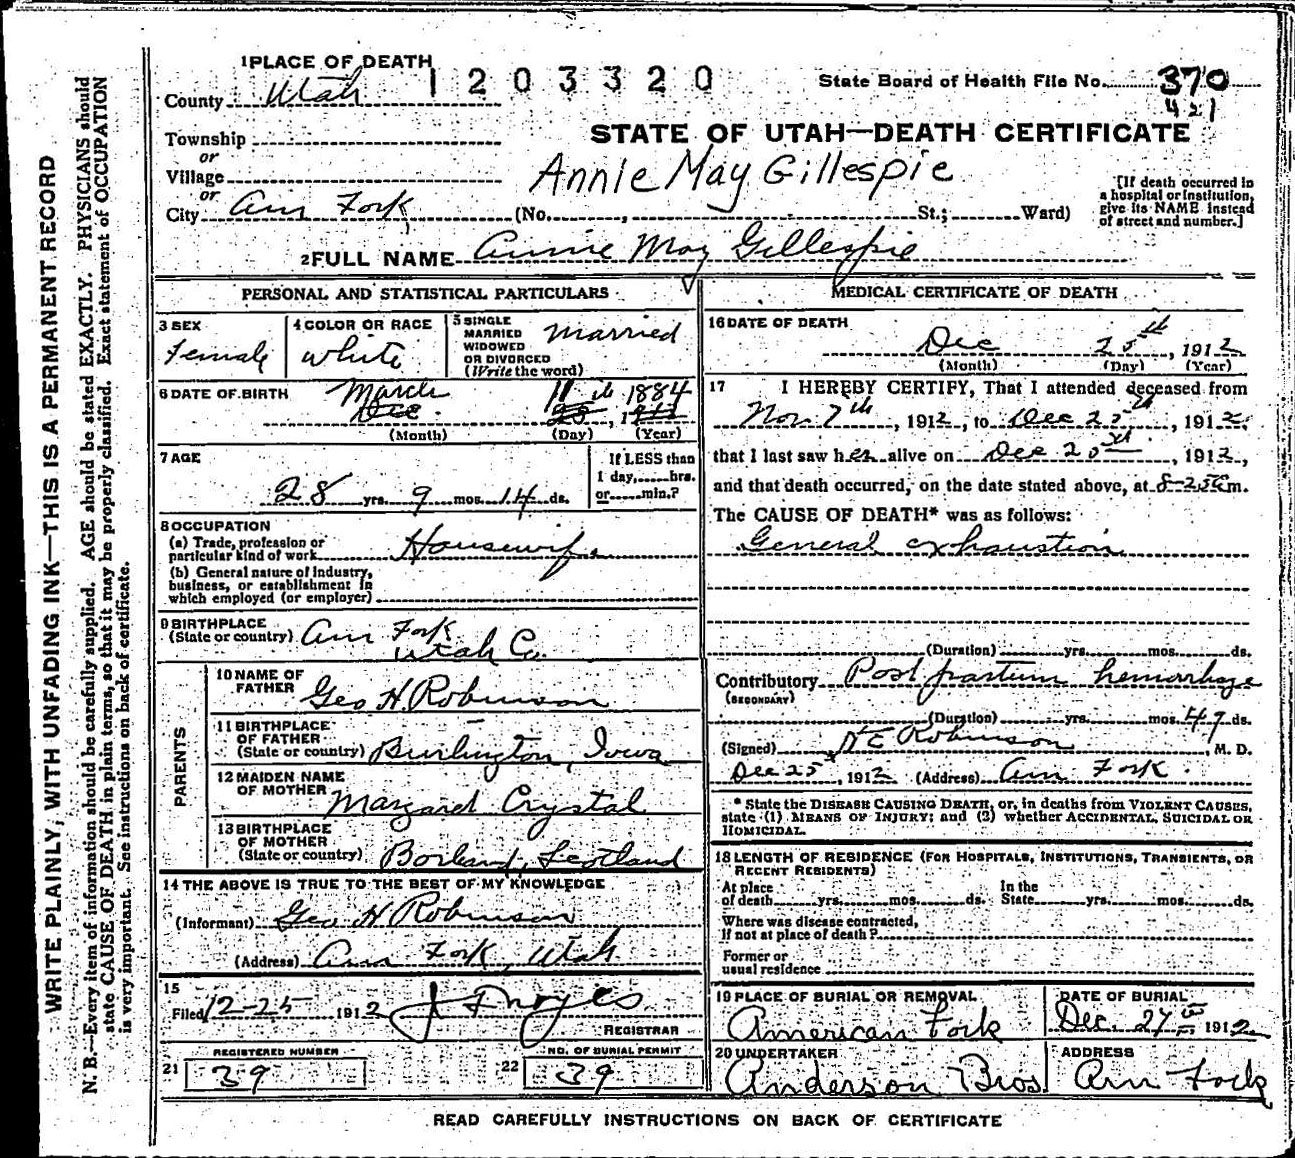 1 PLACE OF DEATH
1203320
State Board of Health File No. 370
421
County Utah
STATE OF UTAH—DEATH CERTIFICATE
Township
or
Village
or
Annie May Gillespie
City Am Fork (No. , St.; Ward)
[If death occurred in a hospital or institution, give its NAME instead of street and number.]
2 FULL NAME Annie May Gillespie
PERSONAL AND STATISTICAL PARTICULARS
3 SEX
Female
4 COLOR OR RACE
White
5 SINGLE MARRIED WIDOWED OR DIVORCED
(Write the word)
Married
6 DATE OF BIRTH
March 11th 1884
Dec 25, 1912
(Month) (Day) (Year)
7 AGE
28 yrs. 9 mos. 14 ds.
If LESS than
1 day, hrs.
or min.?
8 OCCUPATION
(a) Trade, profession or
particular kind of work Housewife
(b) General nature of industry,
business, or establishment in
which employed (or employer)
9 BIRTHPLACE
(State or country) Am Fork
Utah Co.
PARENTS
10 NAME OF
FATHER Geo H Robinson
11 BIRTHPLACE
OF FATHER
(State or country) Burlington, Iowa
12 MAIDEN NAME
OF MOTHER Margard Crystal
13 BIRTHPLACE
OF MOTHER
(State or country) Borland, Scotland
14 THE ABOVE IS TRUE TO THE BEST OF MY KNOWLEDGE
(Informant) Geo H Robinson
(Address) Am Fork, Utah
15
Filed 12-25 1912 J F Noyes
REGISTRAR
21 REGISTERED NUMBER
39
22 NO. OF BURIAL PERMIT
39
MEDICAL CERTIFICATE OF DEATH
16 DATE OF DEATH
Dec 25th, 1912
(Month) (Day) (Year)
17 I HEREBY CERTIFY, That I attended deceased from
Nov 7th, 1912, to Dec 25th, 1912
that I last saw her alive on Dec 25th, 1912,
and that death occurred, on the date stated above, at m.
The CAUSE OF DEATH* was as follows:
General exhaustion
(Duration) yrs. mos. ds.
Contributory Post partum hemorrhage
(SECONDARY)
(Duration) yrs. mos. 49 ds.
(Signed) Robinson, M. D.
Dec 25, 1912 (Address) Am Fork.
* State the DISEASE CAUSING DEATH, or, in deaths from VIOLENT CAUSES,
state (1) MEANS OF INJURY; and (2) whether ACCIDENTAL, SUICIDAL OR
HOMICIDAL.
18 LENGTH OF RESIDENCE (FOR HOSPITALS, INSTITUTIONS, TRANSIENTS, OR
RECENT RESIDENTS)
At place
of death yrs. mos. ds.
In the
State yrs. mos. ds.
Where was disease contracted,
If not at place of death?
Former or
usual residence
19 PLACE OF BURIAL OR REMOVAL
American Fork
DATE OF BURIAL
Dec. 27 1912
20 UNDERTAKER
Anderson Bros.
ADDRESS
Am Fork
READ CAREFULLY INSTRUCTIONS ON BACK OF CERTIFICATE
WRITE PLAINLY, WITH UNFADING INK—THIS IS A PERMANENT RECORD
N. B.—Every item of information should be carefully supplied. AGE should be stated EXACTLY. PHYSICIANS should
state CAUSE OF DEATH in plain terms, so that it may be properly classified. Exact statement of OCCUPATION
is very important. See instructions on back of certificate.